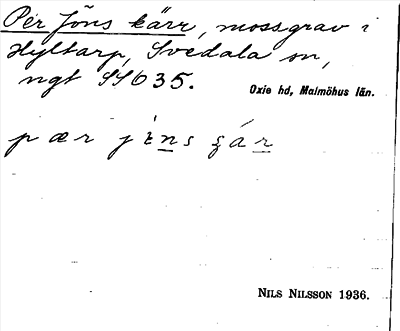 Per Jöns kärr, mossgrav i
Hyltarp, Svedala sn,
ngt SSO 35.
Oxie hd, Malmöhus län.
pær jɛns
NILS NILSSON 1936.